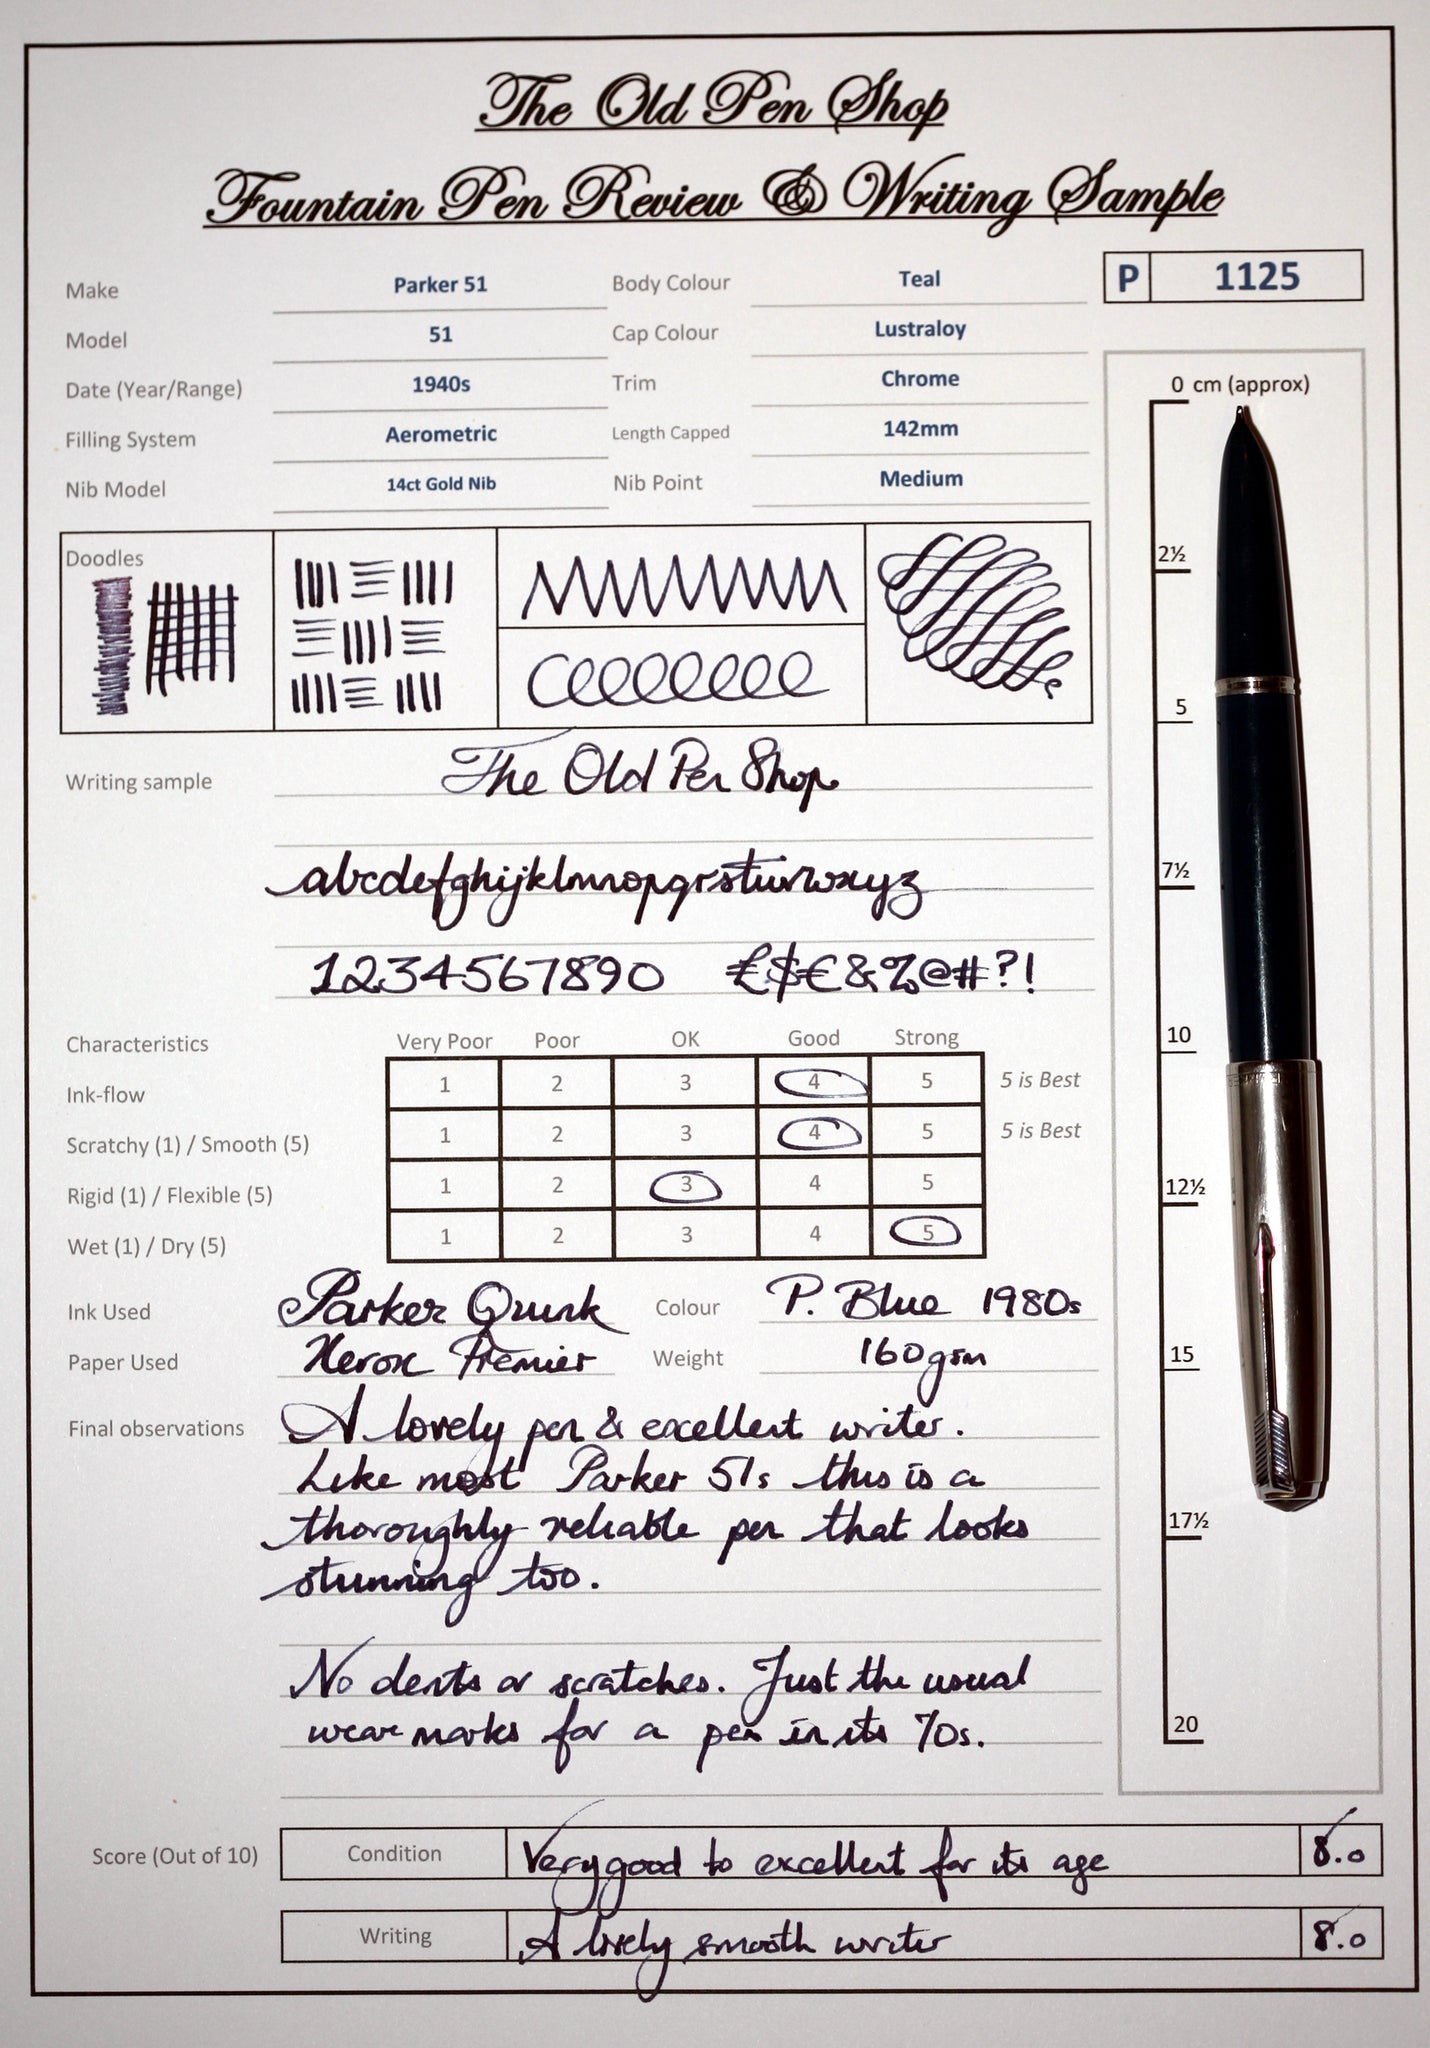 The Old Pen Shop
Fountain Pen Review & Writing Sample
Make Parker 51 Body Colour Teal P 1125
Model 51 Cap Colour Lustraloy
Date (Year/Range) 1940s Trim Chrome
Filling System Aerometric Length Capped 142mm
Nib Model 14ct Gold Nib Nib Point Medium
0 cm (approx)
2½
5
7½
10
12½
15
17½
20
Doodles
Writing sample The Old Pen Shop
abcdefghijklmnopqrstuvwxyz
1234567890 £$€&%@#?!
Characteristics Very Poor Poor OK Good Strong
Ink-flow 1 2 3 4 5 5 is Best
Scratchy (1) / Smooth (5) 1 2 3 4 5 5 is Best
Rigid (1) / Flexible (5) 1 2 3 4 5
Wet (1) / Dry (5) 1 2 3 4 5
Ink Used Parker Quink Colour P. Blue 1980s
Paper Used Xerox Premier Weight 160gsm
Final observations A lovely pen & excellent writer.
Like most Parker 51s this is a
thoroughly reliable pen that looks
stunning too.
No dents or scratches. Just the usual
wear marks for a pen in its 70s.
Score (Out of 10) Condition Very good to excellent for its age 8.0
Writing A lovely smooth writer 8.0